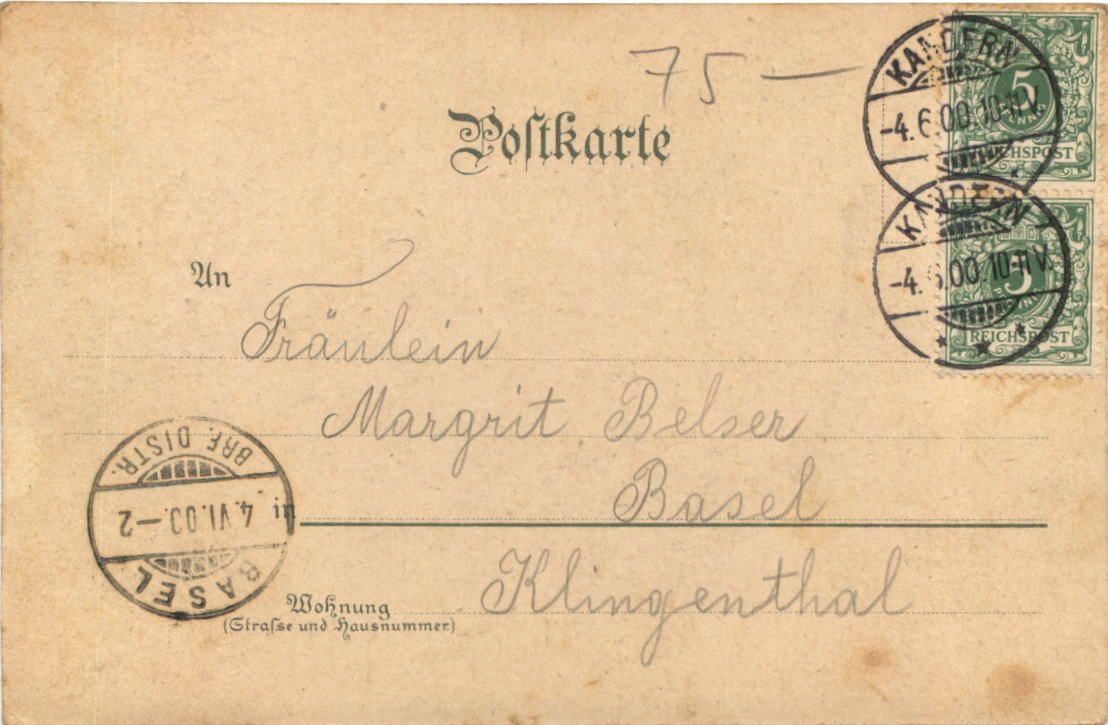 75 —
Postkarte
KANDERN
-4.6.00.10-11V.
5
REICHSPOST
KANDERN
-4.6.00.10-11V.
5
REICHSPOST
An
Fräulein
Margrit Belser
in Basel
Klingenthal
Wohnung
(Strasse und Hausnummer.)
BASEL
4.VI.00.-2
BRF. DISTR.